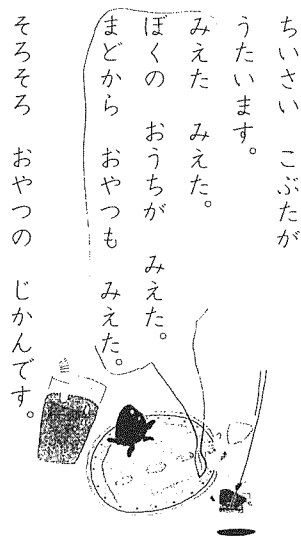 ちいさい　こぶたが
うたいます。
みえた　みえた。
ぼくの　おうちが　みえた。
まどから　おやつも　みえた。
そろそろ　おやつの　じかんです。